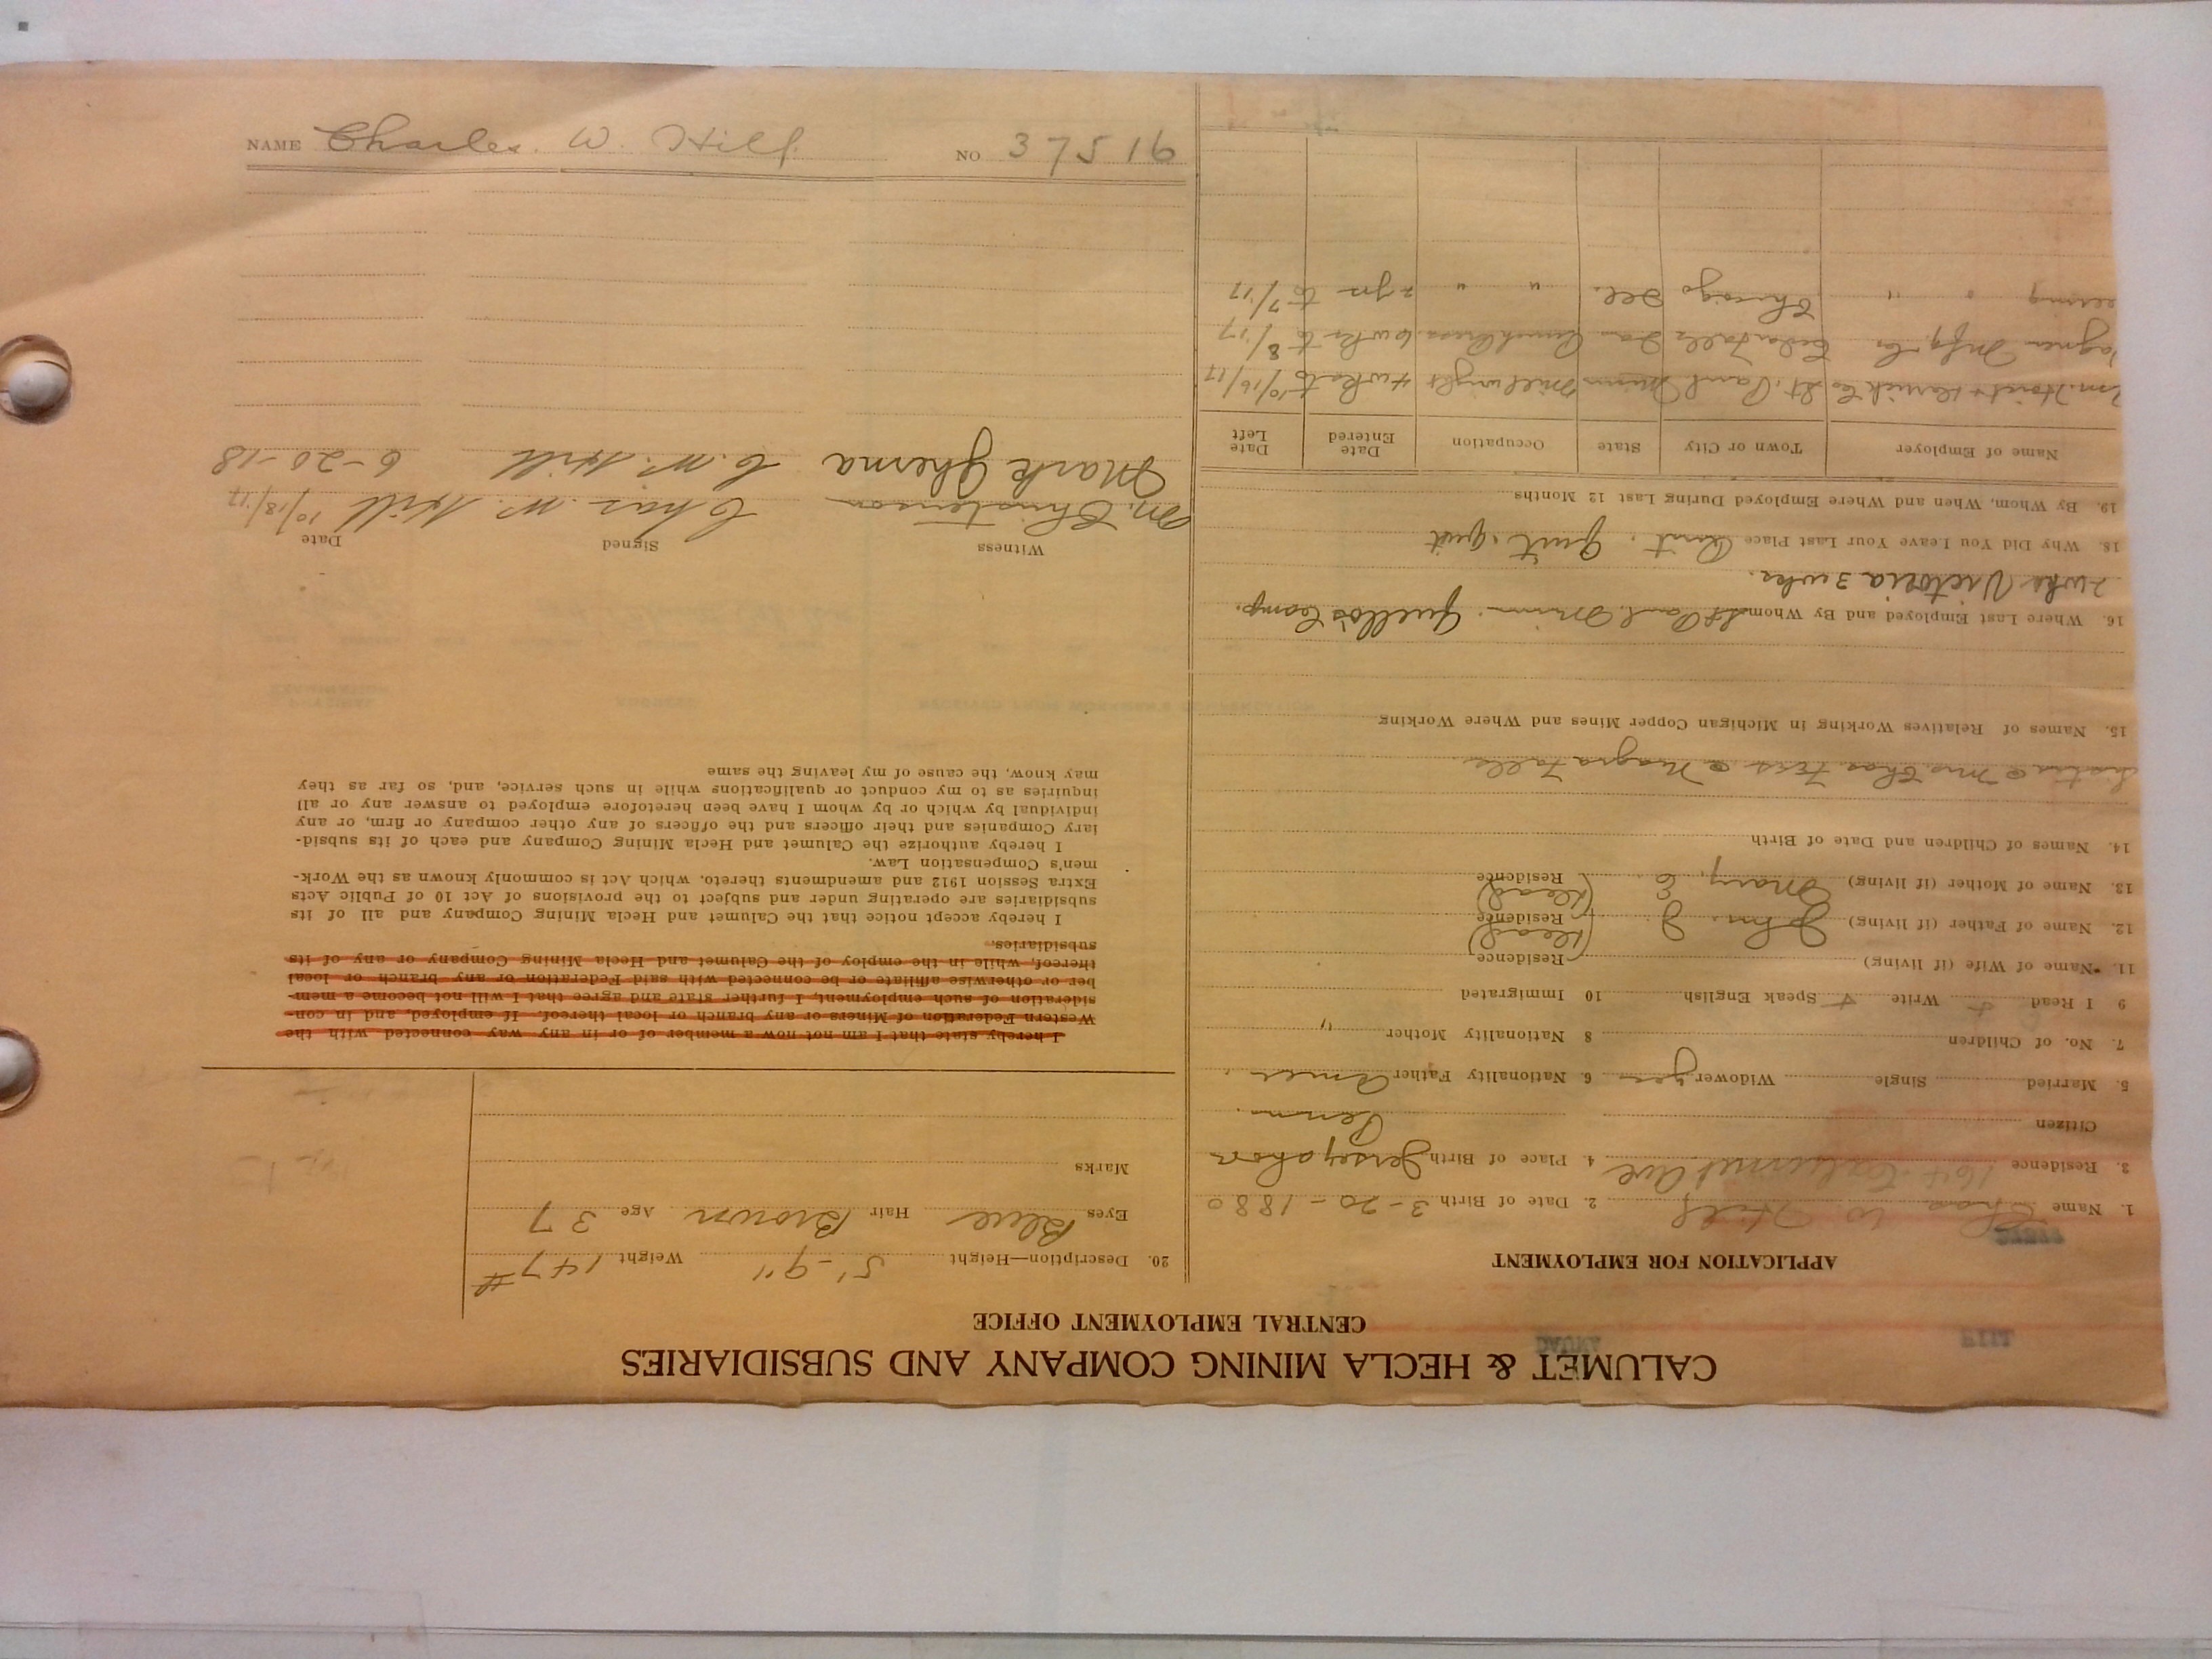 CALUMET & HECLA MINING COMPANY AND SUBSIDIARIES
CENTRAL EMPLOYMENT OFFICE
APPLICATION FOR EMPLOYMENT
1. Name Chas W. Hill 2. Date of Birth 3-20-1880
3. Residence 164 Calumet Ave 4. Place of Birth Jerseyshore
Citizen Penn.
5. Married Single Widower yes 6. Nationality Father Amer.
7. No. of Children 8 Nationality Mother "
9 I Read + Write + Speak English 10 Immigrated
11. Name of Wife (if living) Residence
12. Name of Father (if living) John. J. Residence (Dead)
13. Name of Mother (if living) Mary, E. Residence (Dead)
14. Names of Children and Date of Birth
Sister Mrs. Chas Niagra Falls.
15. Names of Relatives Working in Michigan Copper Mines and Where Working
16. Where Last Employed and By Whom St Paul, Minn. Camp.
2 wks Victoria 3 wks.
18. Why Did You Leave Your Last Place Quit, quit
19. By Whom, When and Where Employed During Last 12 Months
Name of Employer Town or City State Occupation Date Entered Date Left
Am. Hoist & Derrick Co St. Paul Minn Millwright 4 wks to 10/16/17
Mfg Co Cedar Falls Iowa 6 wks to 8/17
" " Chicago Ill. " " 2 yrs to 7/17
20. Description—Height 5'-9" Weight 147 #
Eyes Blue Hair Brown Age 37
Marks
I hereby state that I am not now a member of or in any way connected with the
Western Federation of Miners or any branch or local thereof. If employed, and in con-
sideration of such employment, I further state and agree that I will not become a mem-
ber or otherwise affiliate or be connected with said Federation or any branch or local
thereof, while in the employ of the Calumet and Hecla Mining Company or any of its
subsidiaries.
I hereby accept notice that the Calumet and Hecla Mining Company and all of its
subsidiaries are operating under and subject to the provisions of Act 10 of Public Acts
Extra Session 1912 and amendments thereto, which Act is commonly known as the Work-
men's Compensation Law.
I hereby authorize the Calumet and Hecla Mining Company and each of its subsid-
iary Companies and their officers and the officers of any other company or firm, or any
individual by which or by whom I have been heretofore employed to answer any or all
inquiries as to my conduct or qualifications while in such service, and, so far as they
may know, the cause of my leaving the same
Witness Signed Date
M. Christenson Chas. W. Hill 10/18/17
Mark Gherna C. W. Hill 6-20-18
NAME Charles. W. Hill. NO 37516